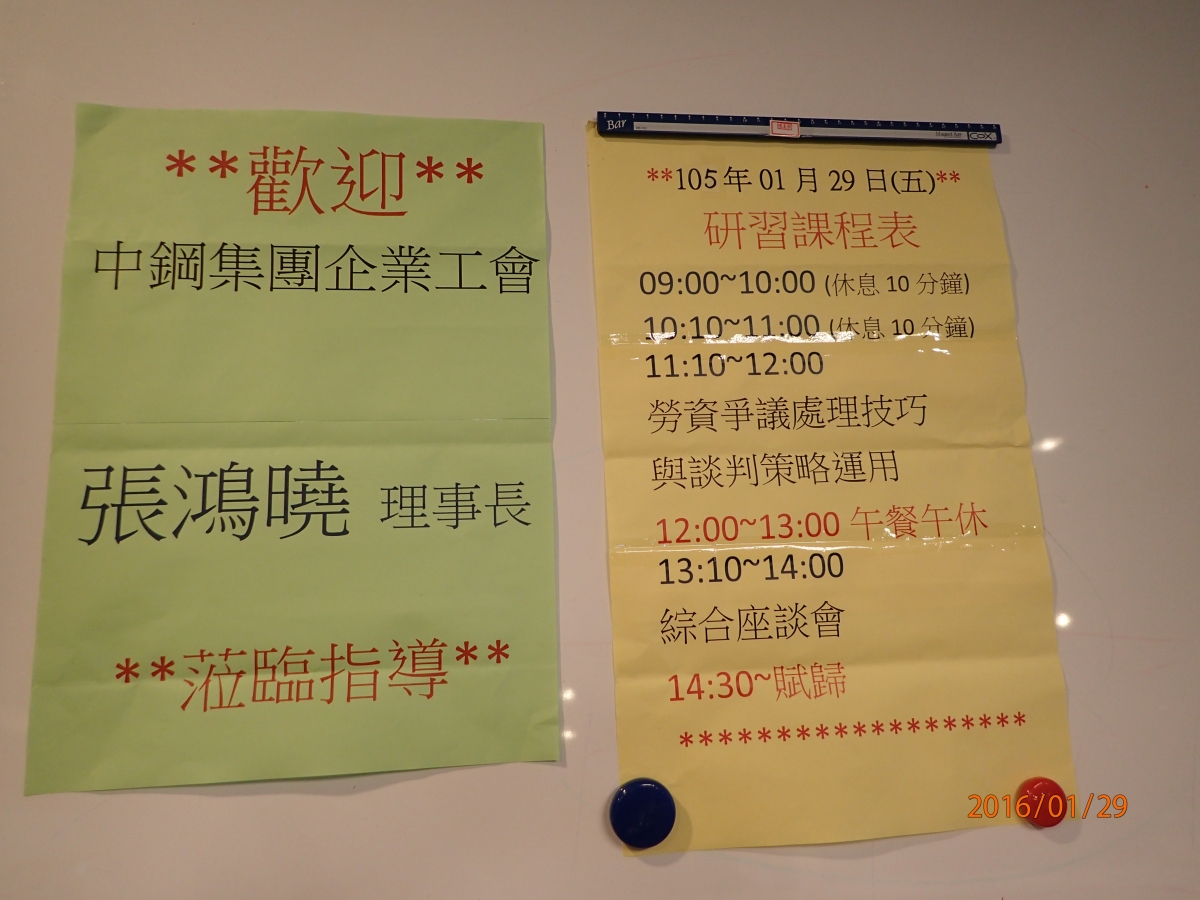 **歡迎**
中鋼集團企業工會
張鴻曉 理事長
**蒞臨指導**
Bar
COX
**105年01月29日(五)**
研習課程表
09:00~10:00 (休息10分鐘)
10:10~11:00 (休息10分鐘)
11:10~12:00
勞資爭議處理技巧
與談判策略運用
12:00~13:00 午餐午休
13:10~14:00
綜合座談會
14:30~賦歸
******************
2016/01/29